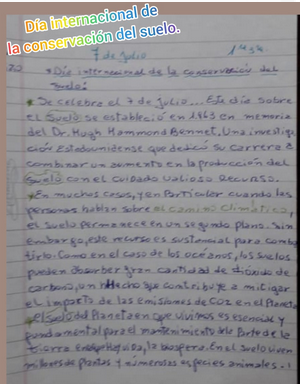 Día internacional de
la conservación del suelo.
7 de Julio
* Día internacional de la conservación del
Suelo:
* Se celebra el 7 de Julio... Este día sobre
el Suelo se estableció en 1963 en memoria
del Dr. Hugh Hammond Bennet. Una investiga
ción Estadounidense que dedicó su carrera a
combinar un aumento en la producción del
Suelo con el cuidado valioso Recurso.
* En muchos casos, y en Particular cuando las
personas hablan sobre el camino Climático,
el suelo permanece en un segundo plano. Sin
embargo, este recurso es sustancial para comba
tirlo. Como en el caso de los océanos, los suelos
pueden absorber gran cantidad de dióxido de
carbono, un hecho que contribuye a mitigar
el impacto de las emisiones de CO2 en el Planeta
el Suelo del Planeta en que vivimos es esencial y
fundamental para el mantenimiento de la Parte de la
tierra la biosfera. En el suelo viven
miles de plantas y numerosas especies animales.